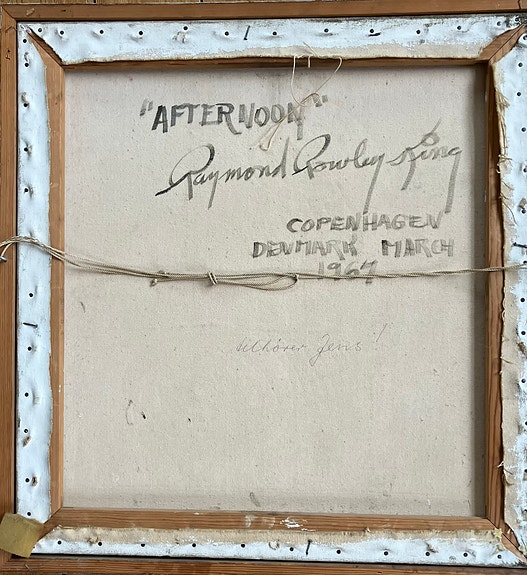 "AFTERNOON"
Raymond Rowley King
COPENHAGEN
DENMARK MARCH
1967
tilhører Jens!